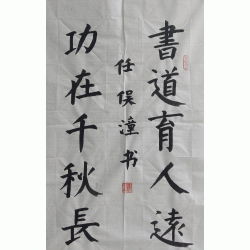 書道育人遠
功在千秋長
任俣潼书